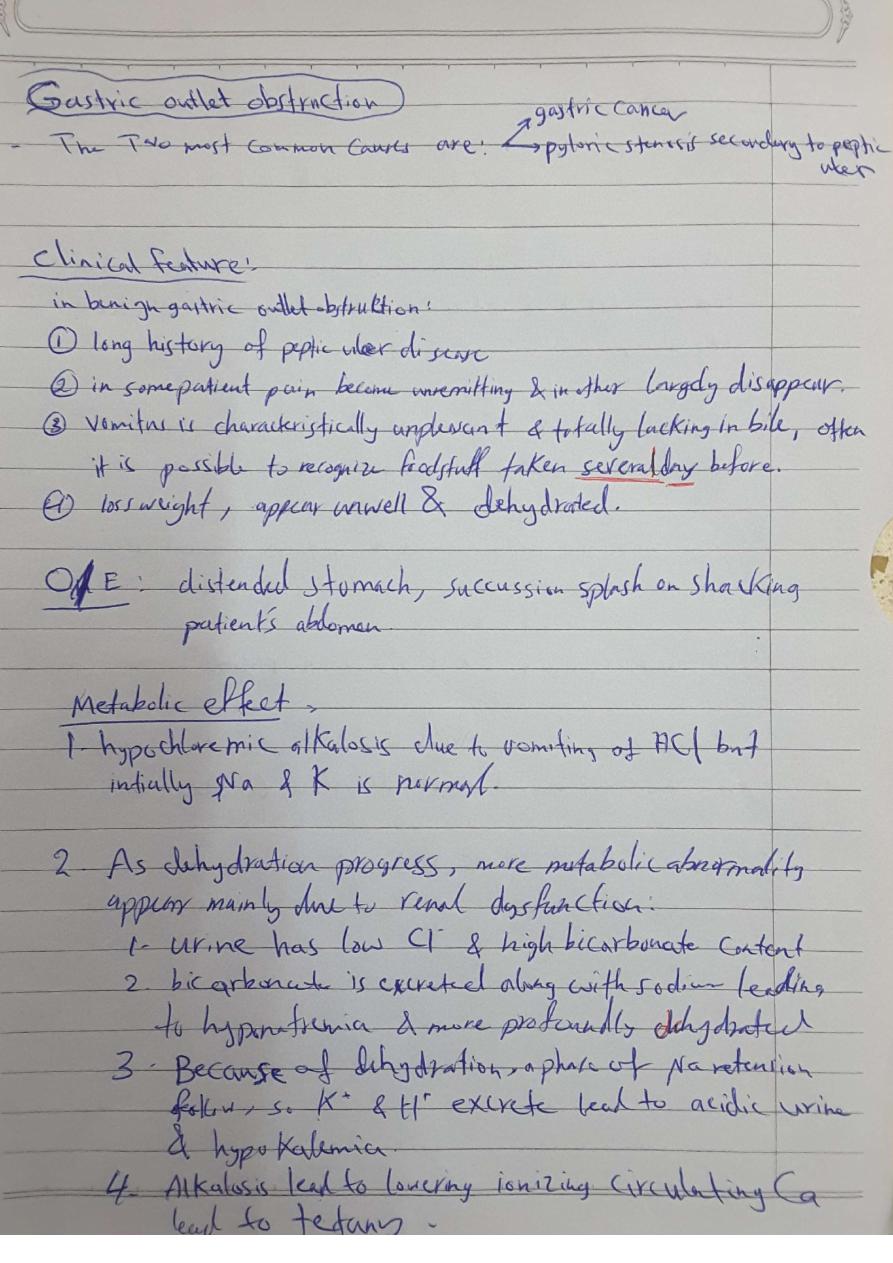 Gastric outlet obstruction
gastric cancer
- The Two most common causes are:
pyloric stenosis secondary to peptic
ulcer
Clinical feature:
in benign gastric outlet obstruktion:
① long history of peptic ulcer disease
② in some patient pain become unremitting & in other largely disappear.
③ vomitus is characteristically unplesant & totally lacking in bile, often
it is possible to recognize foodstuff taken several day before.
④ loss weight, appear unwell & dehydrated.
O/E: distended stomach, succussion splash on shacking
patient's abdomen.
Metabolic effect,
1- hypochloremic alkalosis due to vomiting of HCl but
intially Na & K is normal.
2- As dehydration progress, more metabolic abnormality
appear mainly due to renal dysfunction:
1- urine has low Cl- & high bicarbonate content
2. bicarbonate is excreted along with sodium leading
to hyponatremia & more profoundly dehydrated
3- Because of dehydration, a phase of Na retension
follow, so K+ & H+ excrete lead to acidic urine
& hypokalemia.
4. Alkalosis lead to lowering ionizing circulating Ca
lead to tetany.